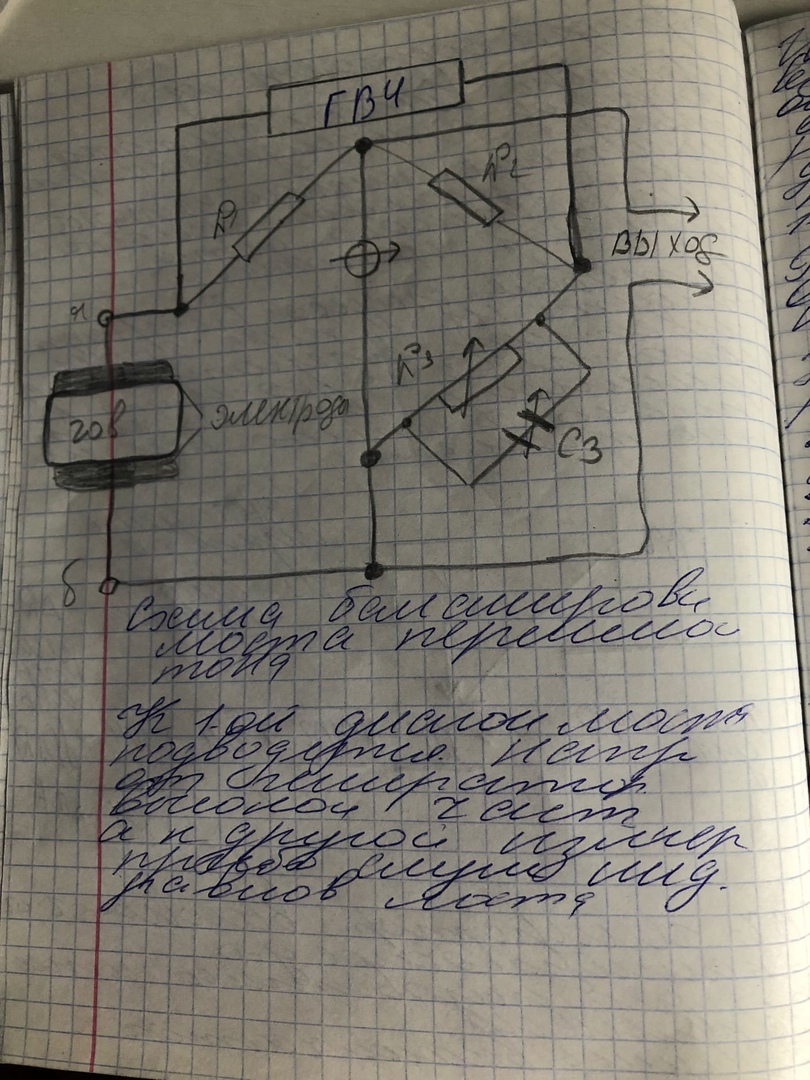 ГВЧ
R1
R2
выход
а
R3
гов
электроды
С3
б
Схема балансировк
моста переменно
тока
К 1-ой диагон моста
подводится напр
от генератор
высокой част
а к другой измер
прибор служ инд.
равнов моста